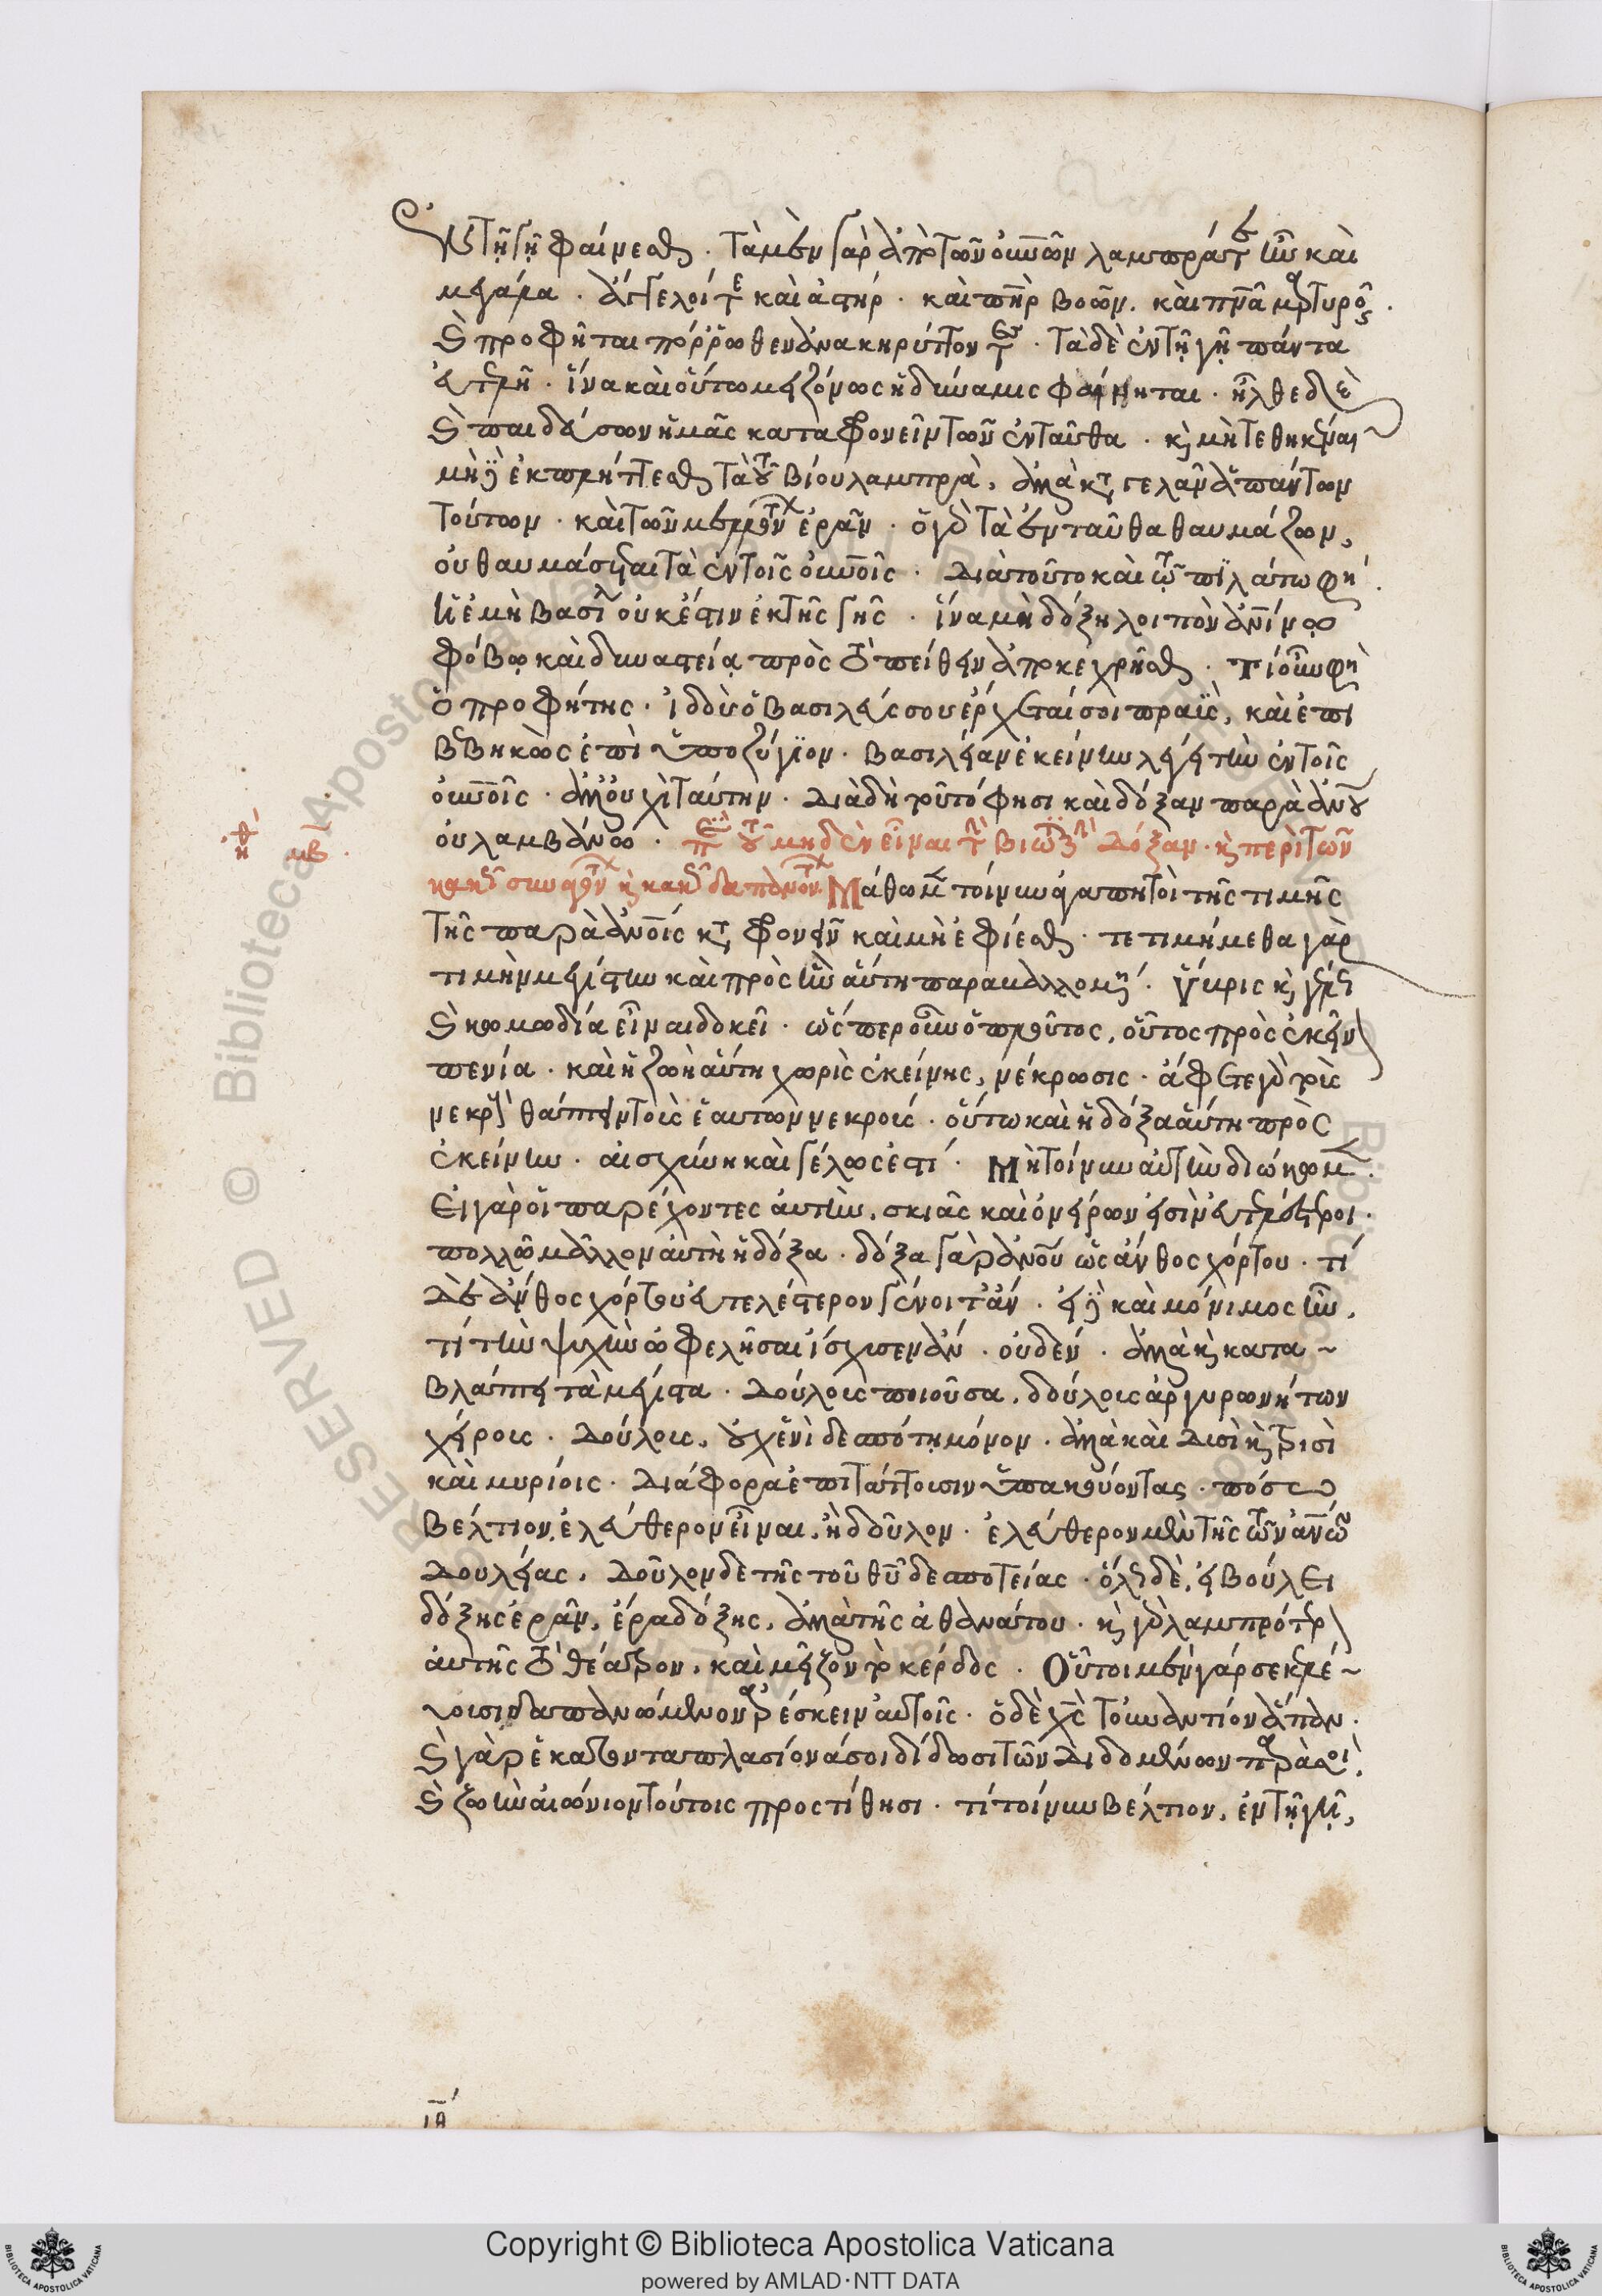 ἐν τῇ γῇ φαίνεσθαι · τὰ μὲν γὰρ ἀπὸ τῶν οὐνῶν λαμπρά τε ἦν καὶ
μεγάλα · ἄγγελοί τε καὶ ἀστήρ · καὶ πὴρ βοῶν · καὶ πνᾶ μαρτυροῦν ·
καὶ προφῆται πόρρωθεν ἀνακηρύττοντες · τὰ δὲ ἐν τῇ γῇ πάντα
εὐτελῆ · ἵνα καὶ οὕτω μειζόνως ἡ δύναμις φαίνηται · ἦλθε δὲ
καὶ παιδεύσων ἡμᾶς καταφρονεῖν τῶν ἐνταῦθα · καὶ μὴ τεθηπέναι
μηδὲ ἐκπλήττεσθαι τὰ τοῦ βίου λαμπρὰ, ἀλλὰ καταγελᾶν ἁπάντων
τούτων · καὶ τῶν μελλόντων ἐρᾶν · ὁ γὰρ τὰ ἐνταῦθα θαυμάζων,
οὐ θαυμάσεται τὰ ἐν τοῖς οὐνοῖς · Διὰ τοῦτο καὶ τῷ πιλάτῳ φη
ἡ ἐμὴ βασιλ οὐκ ἔστιν ἐκ τῆς γῆς · ἵνα μὴ δόξῃ λοιπὸν ἀνίνῳ
φόβῳ καὶ δυναστείᾳ πρὸς τὸ πείθειν ἀποκεχρῆσθαι · τί οὖν φη
ὁ προφήτης · ἰδοὺ ὁ βασιλεύς σου ἔρχεταί σοι πραῢς, καὶ ἐπι
βεβηκὼς ἐπὶ ὑποζύγιον · βασιλείαν ἐκείνην λέγει τὴν ἐν τοῖς
οὐνοῖς · ἀλλ' οὐχὶ ταύτην · Διὰ δὴ τοῦτό φησι καὶ δόξαν παρὰ ἀνου
οὐ λαμβάνω · περὶ τοῦ μηδὲν εἶναι τὴν βιωτικὴν Δόξαν · καὶ περὶ τῶν
κακῶς συναγόντων καὶ κακῶς δαπανώντων. Μάθωμεν τοίνυν ἀγαπητοὶ τῆς τιμῆς
τῆς παρὰ ἀνοις καταφρονεῖν καὶ μὴ ἐφίεσθαι · τετιμήμεθα γὰρ
τιμὴν μεγίστην καὶ πρὸς ἣν αὕτη παραβαλλομένη · ὕβρις καὶ γέλως
καὶ κωμωδία εἶναι δοκεῖ · ὥσπερ οὖν ὁ πλοῦτος, οὗτος πρὸς ἐκεῖνον
πενία · καὶ ἡ ζωὴ αὕτη χωρὶς ἐκείνης, νέκρωσις · ἄφετε γὰρ τοὺς
νεκροὺς θάπτειν τοὺς ἑαυτῶν νεκρούς · οὕτω καὶ ἡ δόξα αὕτη πρὸς
ἐκείνην · αἰσχύνη καὶ γέλως ἐστί · Μὴ τοίνυν αὐτὴν διώκωμεν.
Εἰ γὰρ οἱ παρέχοντες αὐτὴν, σκιᾶς καὶ ὀνείρων εἰσὶν εὐτελέστεροι ·
πολλῶ μᾶλλον αὐτὴ ἡ δόξα · δόξα γὰρ ἀνοῦ ὡς ἄνθος χόρτου · τί
Δὲ ἄνθος χόρτου εὐτελέστερον γένοιτ' ἄν · εἰ δὲ καὶ μόνιμος ἦν,
τί τὴν ψυχὴν ὠφελῆσαι ἴσχυσεν ἄν · οὐδέν · ἀλλὰ καὶ κατα
βλάπτει τὰ μέγιστα · Δούλους ποιοῦσα, δούλους ἀργυρωνήτων
χείρους · Δούλους, οὐχ ἑνὶ δεσπότῃ μόνον · ἀλλὰ καὶ Δυσὶ καὶ τρισὶ
καὶ μυρίοις · Διάφορα ἐπιτάττουσιν ὑπακούοντας · πόσῳ
βέλτιον, ἐλεύθερον εἶναι, ἢ δοῦλον · ἐλεύθερον μὲν τῆς τῶν ἀνων
Δουλείας, Δοῦλον δὲ τῆς τοῦ θυ δεσποτείας · ὅλως δὲ, εἰ βούλει
δόξης ἐρᾶν, ἔρα δόξης, ἀλλὰ τῆς ἀθανάτου · καὶ γὰρ λαμπρότερον
αὐτῆς τὸ θέατρον, καὶ μεῖζον τὸ κέρδος · Οὗτοι μὲν γάρ σε κελεύ
ουσι δαπανώμενον ἀρέσκειν αὐτοῖς · ὁ δὲ χς τοὐναντίον ἅπαν ·
καὶ γὰρ ἑκατονταπλασίονά σοι δίδωσι τῶν Διδομένων παρὰ σοῦ ·
καὶ ζωὴν αἰώνιον τούτοις προστίθησι · τί τοίνυν βέλτιον, ἐν τῇ γῇ,
ἠθ μβ ·
ια
Biblioteca Apostolica Vaticana
RESERVED © Biblioteca Apostolica
Copyright © Biblioteca Apostolica Vaticana
powered by AMLAD·NTT DATA
BIBLIOTECA APOSTOLICA VATICANA
BIBLIOTECA APOSTOLICA VATICANA